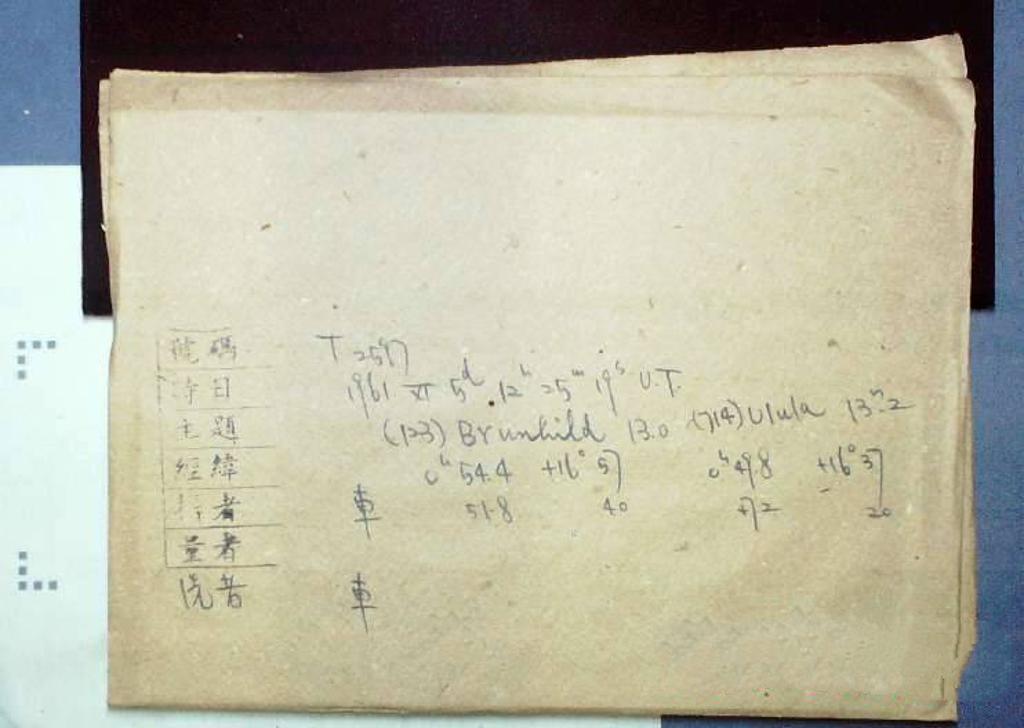 號碼 T 2597
時日 1961 XI 5ᵈ 12ʰ 25ᵐ 19ˢ U.T.
主題 (123) Brunhild 13.0 (714) Ulula 13ᵐ.2
經緯 0ʰ 54.4 +16° 57 0ʰ 49.8 +16° 37
者 車 51.8 40 47.2 20
量者
洗者 車